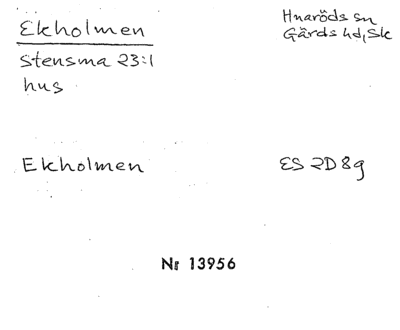 Ekholmen
Hnaröds sn
Gärds hd, Sk
Stensma 23:1
hus
Ekholmen
ES 2D 8g
Nr 13956